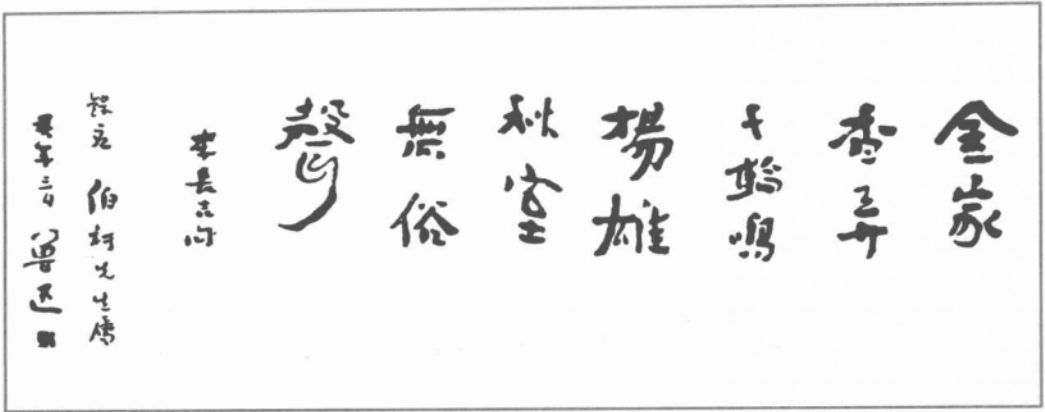 金家
香弄
千輪鳴
楊雄
秋室
無俗
聲
李長吉句
錄應 伯封先生屬
亥年三月 魯迅